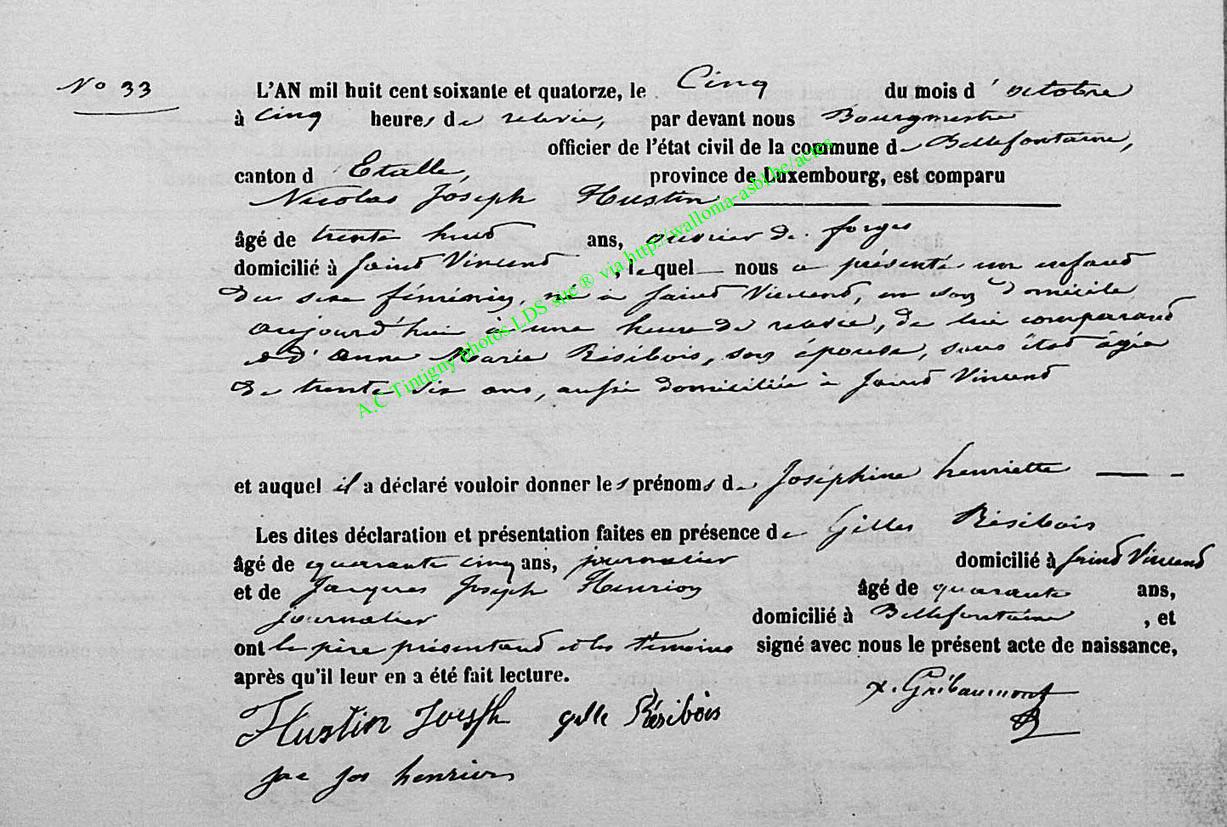 No 33
L'AN mil huit cent soixante et quatorze, le Cinq du mois d'octobre
à Cinq heures de relevée, par devant nous Bourgmestre
officier de l'état civil de la commune de Bellefontaine,
canton d'Etalle, province de Luxembourg, est comparu
Nicolas Joseph Hustin
âgé de trente huit ans, ouvrier de forges
domicilié à Saint Vincent, lequel nous a présenté un enfant
du sexe féminin, né à Saint Vincent, en son domicile
aujourd'hui à une heure de relevée, de lui comparant
et d'Anne Marie Résibois, son épouse, sans état âgée
de trente six ans, aussi domiciliée à Saint Vincent
et auquel il a déclaré vouloir donner les prénoms de Joséphine henriette
Les dites déclaration et présentation faites en présence de Gilles Résibois
âgé de quarante cinq ans, journalier domicilié à Saint Vincent
et de Jacques Joseph Henrion âgé de quarante ans,
journalier domicilié à Bellefontaine, et
ont le père présentant et les témoins signé avec nous le présent acte de naissance,
après qu'il leur en a été fait lecture.
Hustin Joseph gille Résibois
jac jos henrion
A.C Tintigny photos LDS site ® via http://walloma-asbl.be/actes